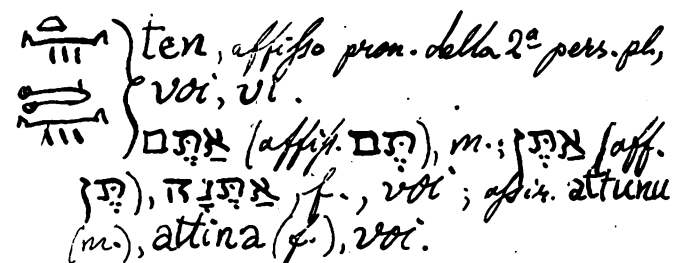 𓏏𓈖𓏥 ten, affisso pron. della 2ª pers. pl.,
𓍿𓈖𓏥 voi, vi.
אַתֶּם (affiss. תֶּם), m.; אַתֶּן (aff.
תֶּן), אַתֵּנָה, f., voi; assir. attunu
(m.), attina (f.), voi.